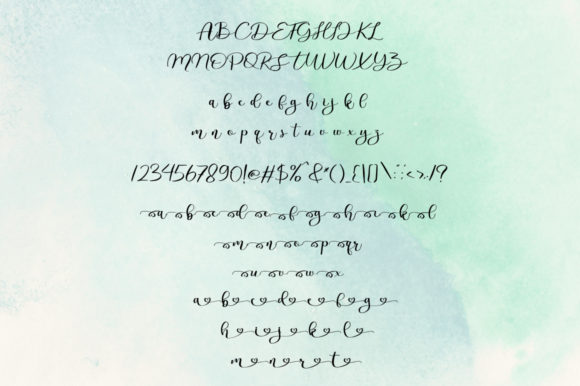 ABCDEFGHIJKL
MNOPQRSTUVWXYZ
a b c d e f g h i j k l
m n o p q r s t u v w x y z
1234567890!@#$%^&*()_{|[]\:;<>,.1?
a b c d e f g h i k l
m n o p q r
u v w x
a b c d e f g
h i j k l
m n r t